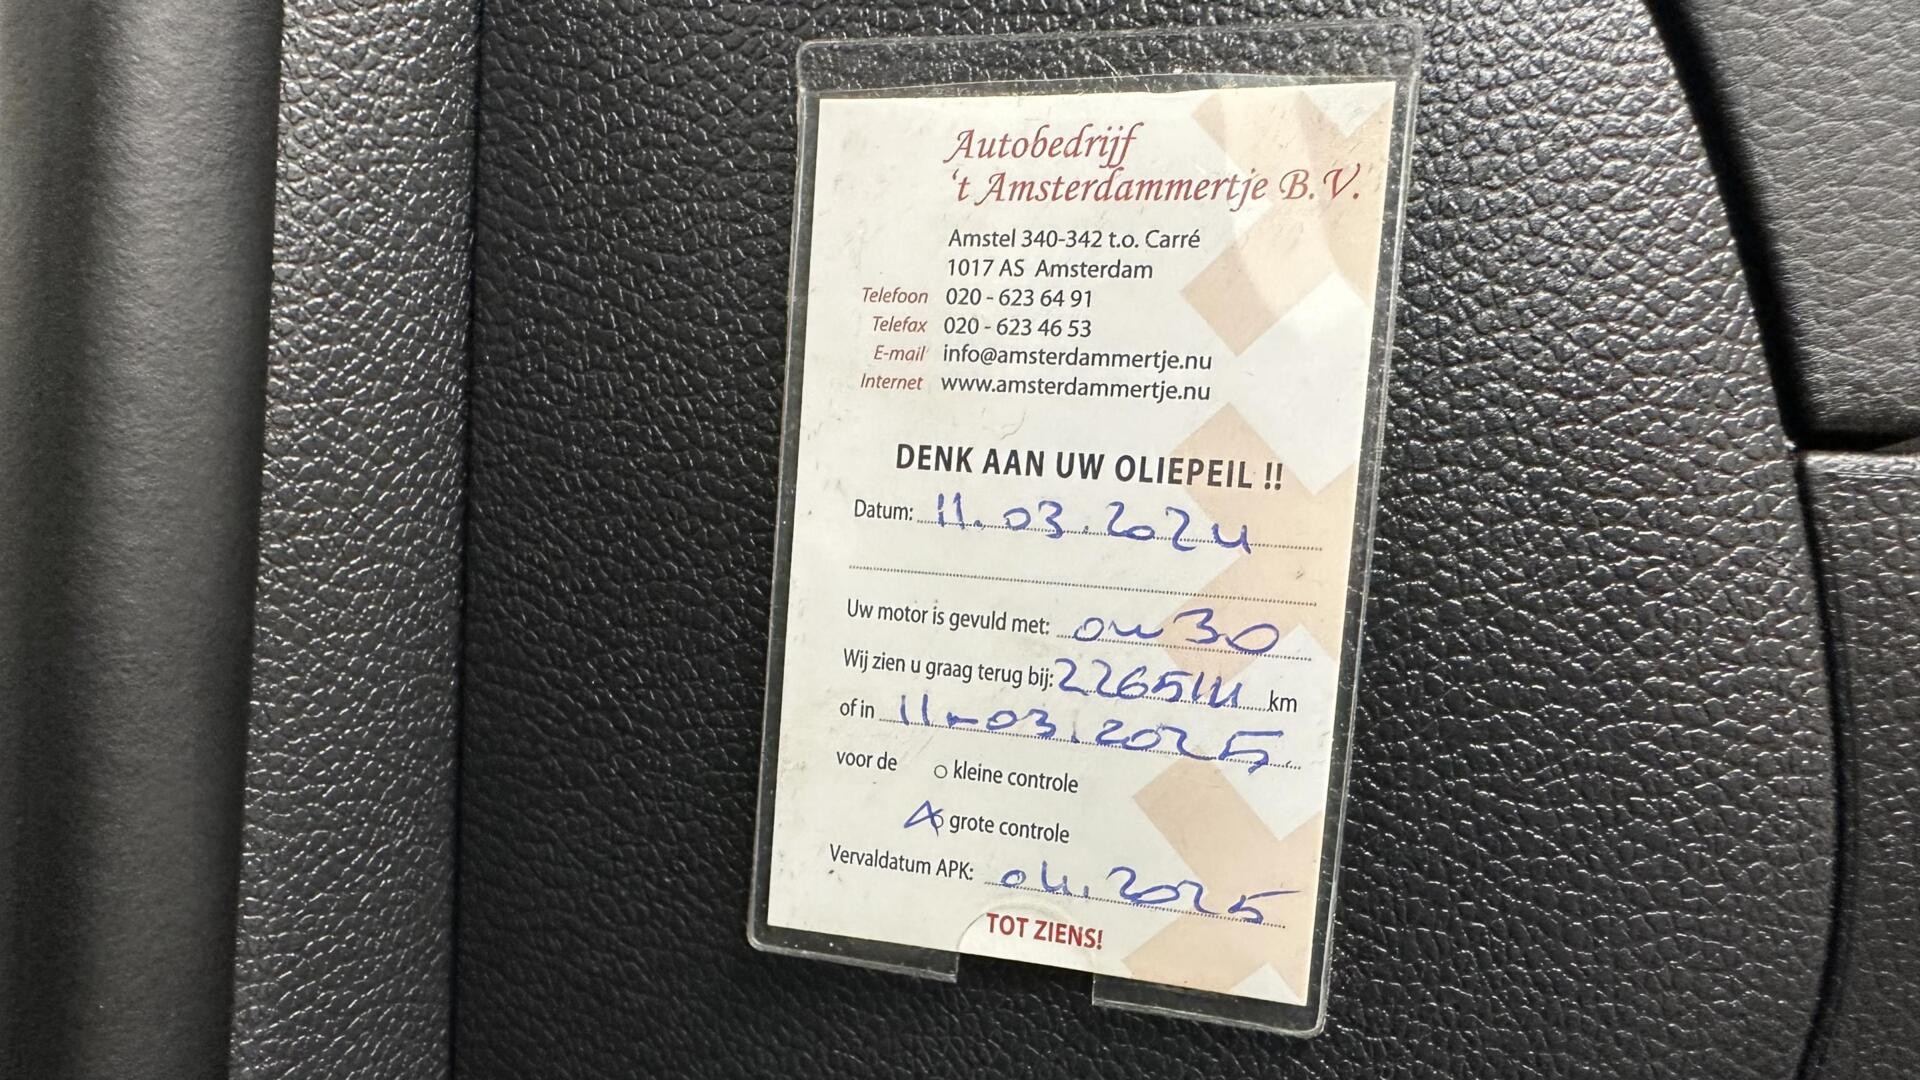 Autobedrijf
't Amsterdammertje B.V.
Amstel 340-342 t.o. Carré
1017 AS Amsterdam
Telefoon 020 - 623 64 91
Telefax 020 - 623 46 53
E-mail info@amsterdammertje.nu
Internet www.amsterdammertje.nu
DENK AAN UW OLIEPEIL !!
Datum: 11.03.2024
Uw motor is gevuld met: 0w30
Wij zien u graag terug bij: 226514 km
of in 11-03.2025
voor de kleine controle
grote controle
Vervaldatum APK: 04.2025
TOT ZIENS!